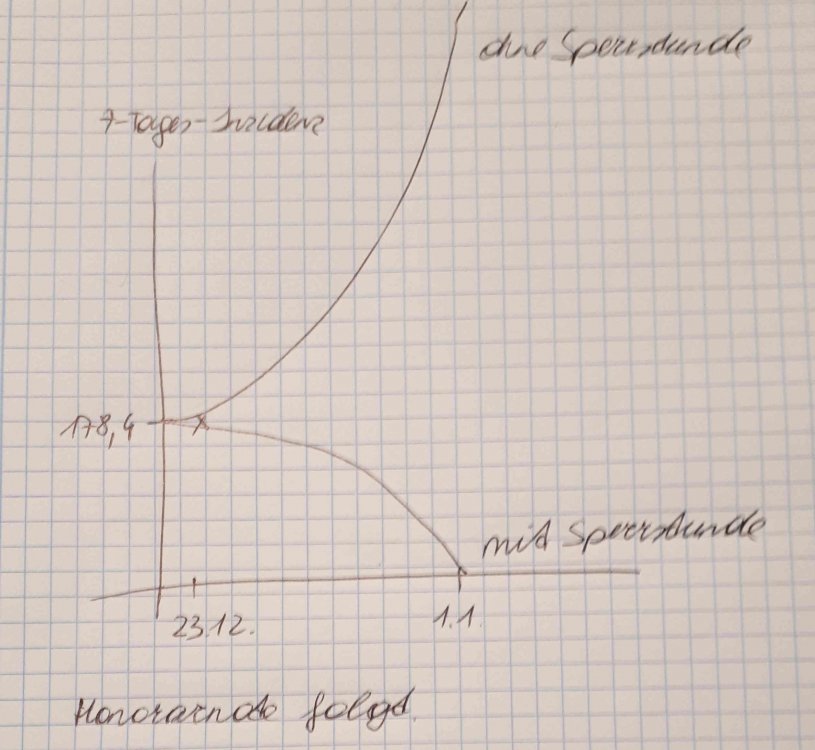 ohne Sperrstunde
7-Tages-Inzidenz
178,4
mit Sperrstunde
23.12.
1.1.
Honorarnote folgt.